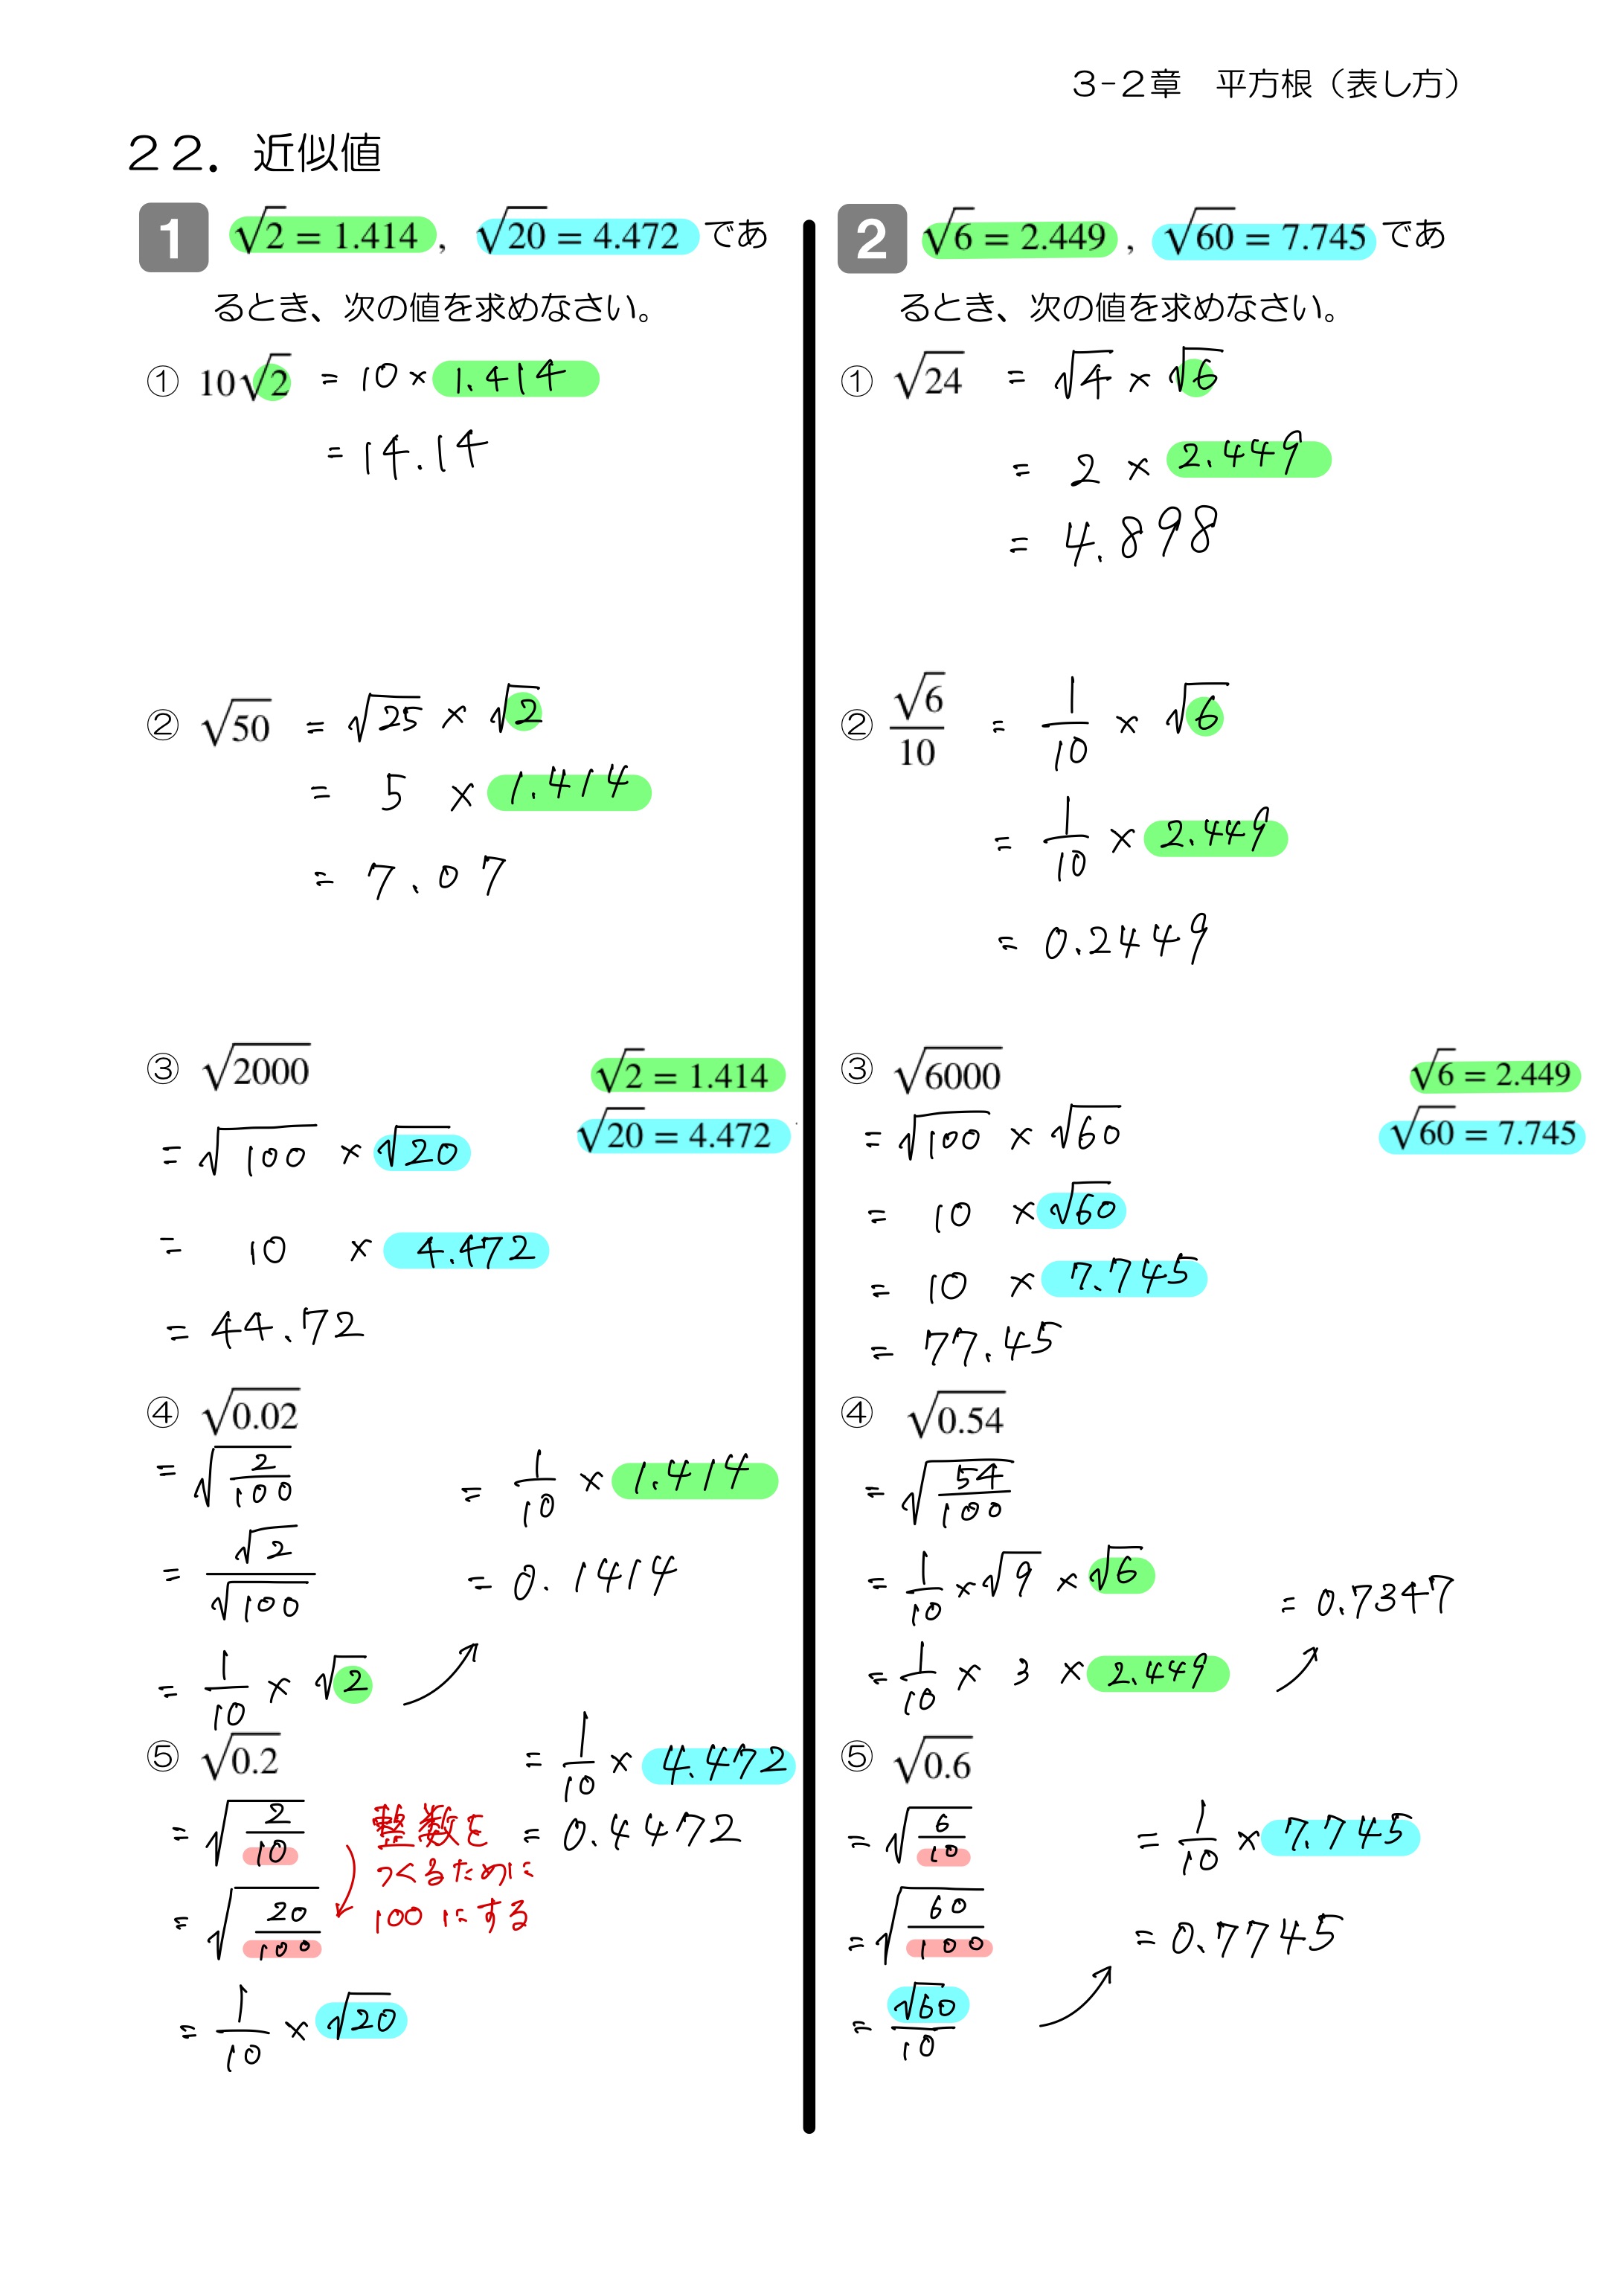 3-2章 平方根（表し方）
22．近似値
1 √2 = 1.414 , √20 = 4.472 であ
るとき、次の値を求めなさい。
① 10√2 = 10 × 1.414
= 14.14
② √50 = √25 × √2
= 5 × 1.414
= 7.07
③ √2000
√2 = 1.414
√20 = 4.472
= √100 × √20
= 10 × 4.472
= 44.72
④ √0.02
= √(2/100)
= √2/√100
= 1/10 × √2
= 1/10 × 1.414
= 0.1414
⑤ √0.2
= √(2/10)
= √(20/100)
整数を
つくるために
100にする
= 1/10 × √20
= 1/10 × 4.472
= 0.4472
2 √6 = 2.449 , √60 = 7.745 であ
るとき、次の値を求めなさい。
① √24 = √4 × √6
= 2 × 2.449
= 4.898
② √6/10 = 1/10 × √6
= 1/10 × 2.449
= 0.2449
③ √6000
√6 = 2.449
√60 = 7.745
= √100 × √60
= 10 × √60
= 10 × 7.745
= 77.45
④ √0.54
= √(54/100)
= 1/10 × √9 × √6
= 1/10 × 3 × 2.449
= 0.7347
⑤ √0.6
= √(6/10)
= √(60/100)
= √60/10
= 1/10 × 7.745
= 0.7745